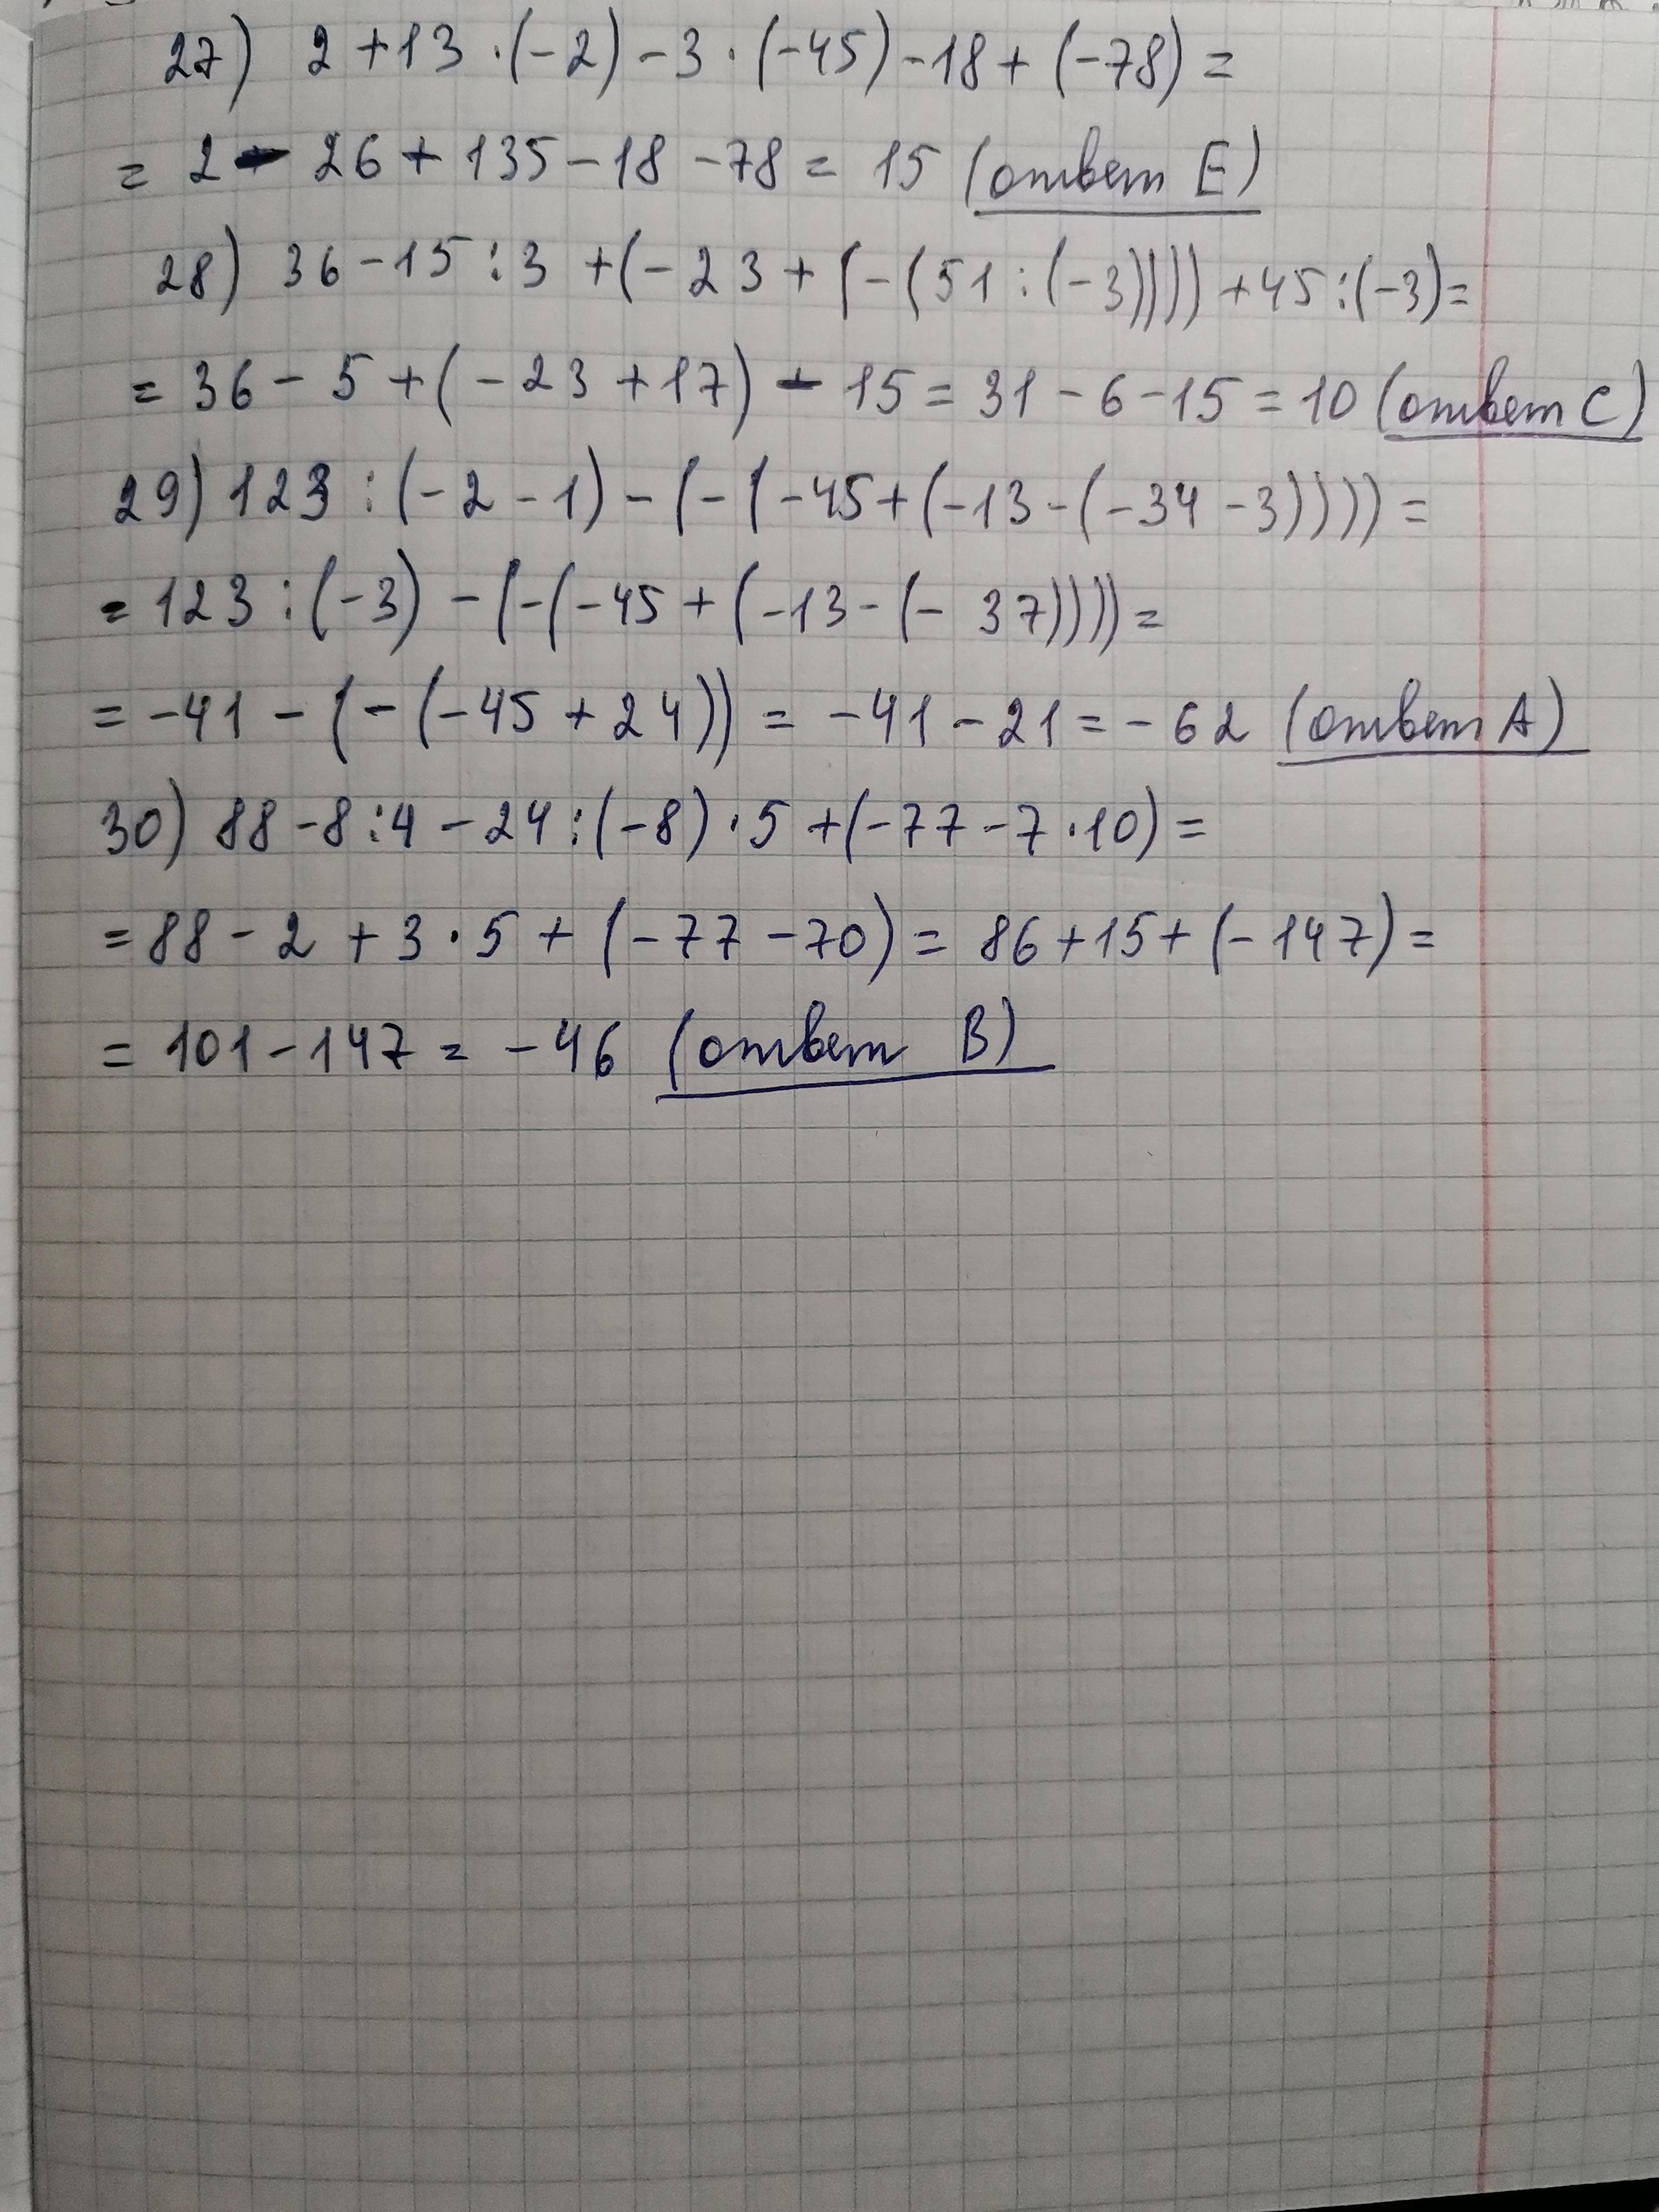 27) 2 + 13 · (-2) - 3 · (-45) - 18 + (-78) =
= 2 - 26 + 135 - 18 - 78 = 15 (ответ E)
28) 36 - 15 : 3 + (-23 + (-(51 : (-3)))) + 45 : (-3) =
= 36 - 5 + (-23 + 17) - 15 = 31 - 6 - 15 = 10 (ответ C)
29) 123 : (-2 - 1) - (-(-45 + (-13 - (-34 - 3)))) =
= 123 : (-3) - (-(-45 + (-13 - (-37)))) =
= -41 - (-(-45 + 24)) = -41 - 21 = -62 (ответ A)
30) 88 - 8 : 4 - 24 : (-8) · 5 + (-77 - 7 · 10) =
= 88 - 2 + 3 · 5 + (-77 - 70) = 86 + 15 + (-147) =
= 101 - 147 = -46 (ответ B)